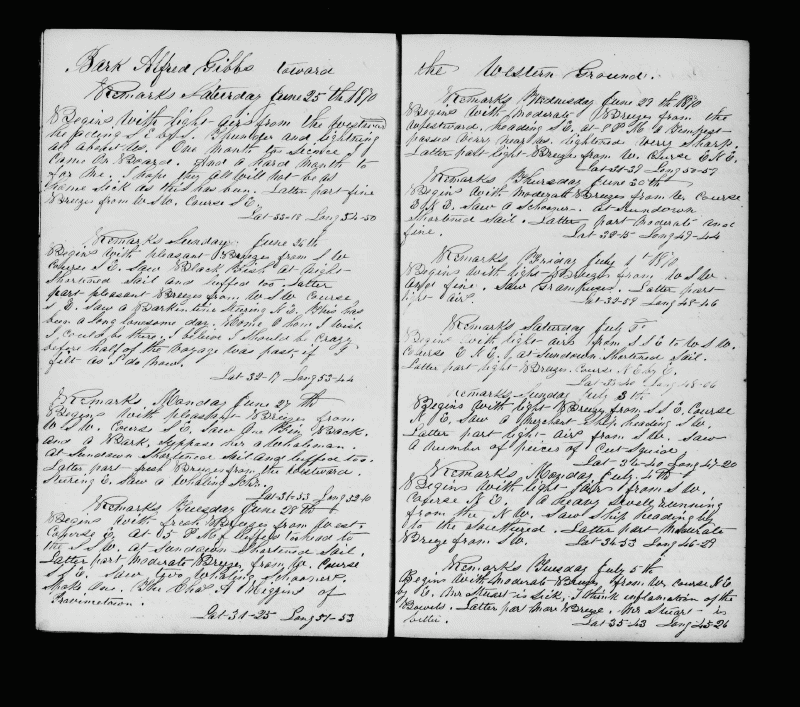 Bark Alfred Gibbs toward
Remarks Saturday June 25th 1870
Begins with light airs from the Westward
heading S E by S. Thunder and lightning
all about us. One month to since I
Came On Board. And a hard month to
for me. I hope they all will not be as
home sick as this has been. Latter part fine
Breeze from W S W. Course S E.
Lat 33-18 Long 54-50
Remarks Sunday June 26th
Begins with pleasant Breezes from S W
Course S E. Saw Black Fish at night
Shortened sail and luffed too. Latter
part pleasant Breezes from W S W Course
S E. Saw a Barkentine Steering N E. This has
been a long lonesome day. Home O how I wish
I could be there. I believe I should be Crazy
before half of the Voyage was past if I
felt as I do now.
Lat 32-17 Long 53-44
Remarks Monday June 27th
Begins with pleasant Breezes from
W S W. Course S E. Saw One Fin Back.
and a Bark. Suppose her a Whaleman.
at Sundown Shortened Sail and luffed too.
Latter part fresh Breezes from the Westward.
Steering E. Saw a Whaling Schr.
Lat 31-33 Long 52-10
Remarks Tuesday June 28th
Begins with fresh Breezes from West.
Course E. At 5 P M luffed head to
the S S W. at Sundown Shortened Sail.
Latter part Moderate Breeze from W. Course
S E. Saw two Whaling Schooners.
Spoke One. The Chas. Higgins of
Provincetown.
Lat 31-25 Long 51-53
the Western Ground.
Remarks Wednesday June 29th 1870
Begins with moderate Breezes from the
Westward, heading S E. at 8 P M a Tempest
passed very near us. lightened very sharp.
Latter part light Breeze from W. Course E N E.
Lat 31-39 Long 50-57
Remarks Thursday June 30th
Begins with moderate Breezes from W. Course
E by N. Saw a Schooner. At Sundown
Shortened Sail. Latter part moderate and
fine. Lat 32-15 Long 49-44
Remarks Friday July 1st 1870
Begins with light Breezes from W S W
and fine. Saw Grampuses. Latter part
light airs. Lat 32-59 Long 48-46
Remarks Saturday July 2d
Begins with light airs from S S E to W S W.
Course E N E. at Sundown Shortened Sail.
Latter part light Breezes. Course N E by E.
Lat 33-40 Long 48-06
Remarks Sunday July 3th
Begins with light Breeze from S S E. Course
N E. Saw a Merchant Ship heading S W.
Latter part light airs from S W. Saw
a number of pieces of Cut Squid
Lat 34-40 Long 47-20
Remarks Monday July 4th
Begins with light airs from S W.
Course N E. A heavy Swell running
from the N W. Saw Ship heading by
to the Southered. Latter part Moderate
Breeze from S W. Lat 34-53 Long 46-29
Remarks Tuesday July 5th
Begins with Moderate Breezes from W. Course N E
by E. Mr Stuart is Sick, I think inflamation of the
Bowels. Latter part more Breeze. Mr Stuart is
better. Lat 35-43 Long 45-26